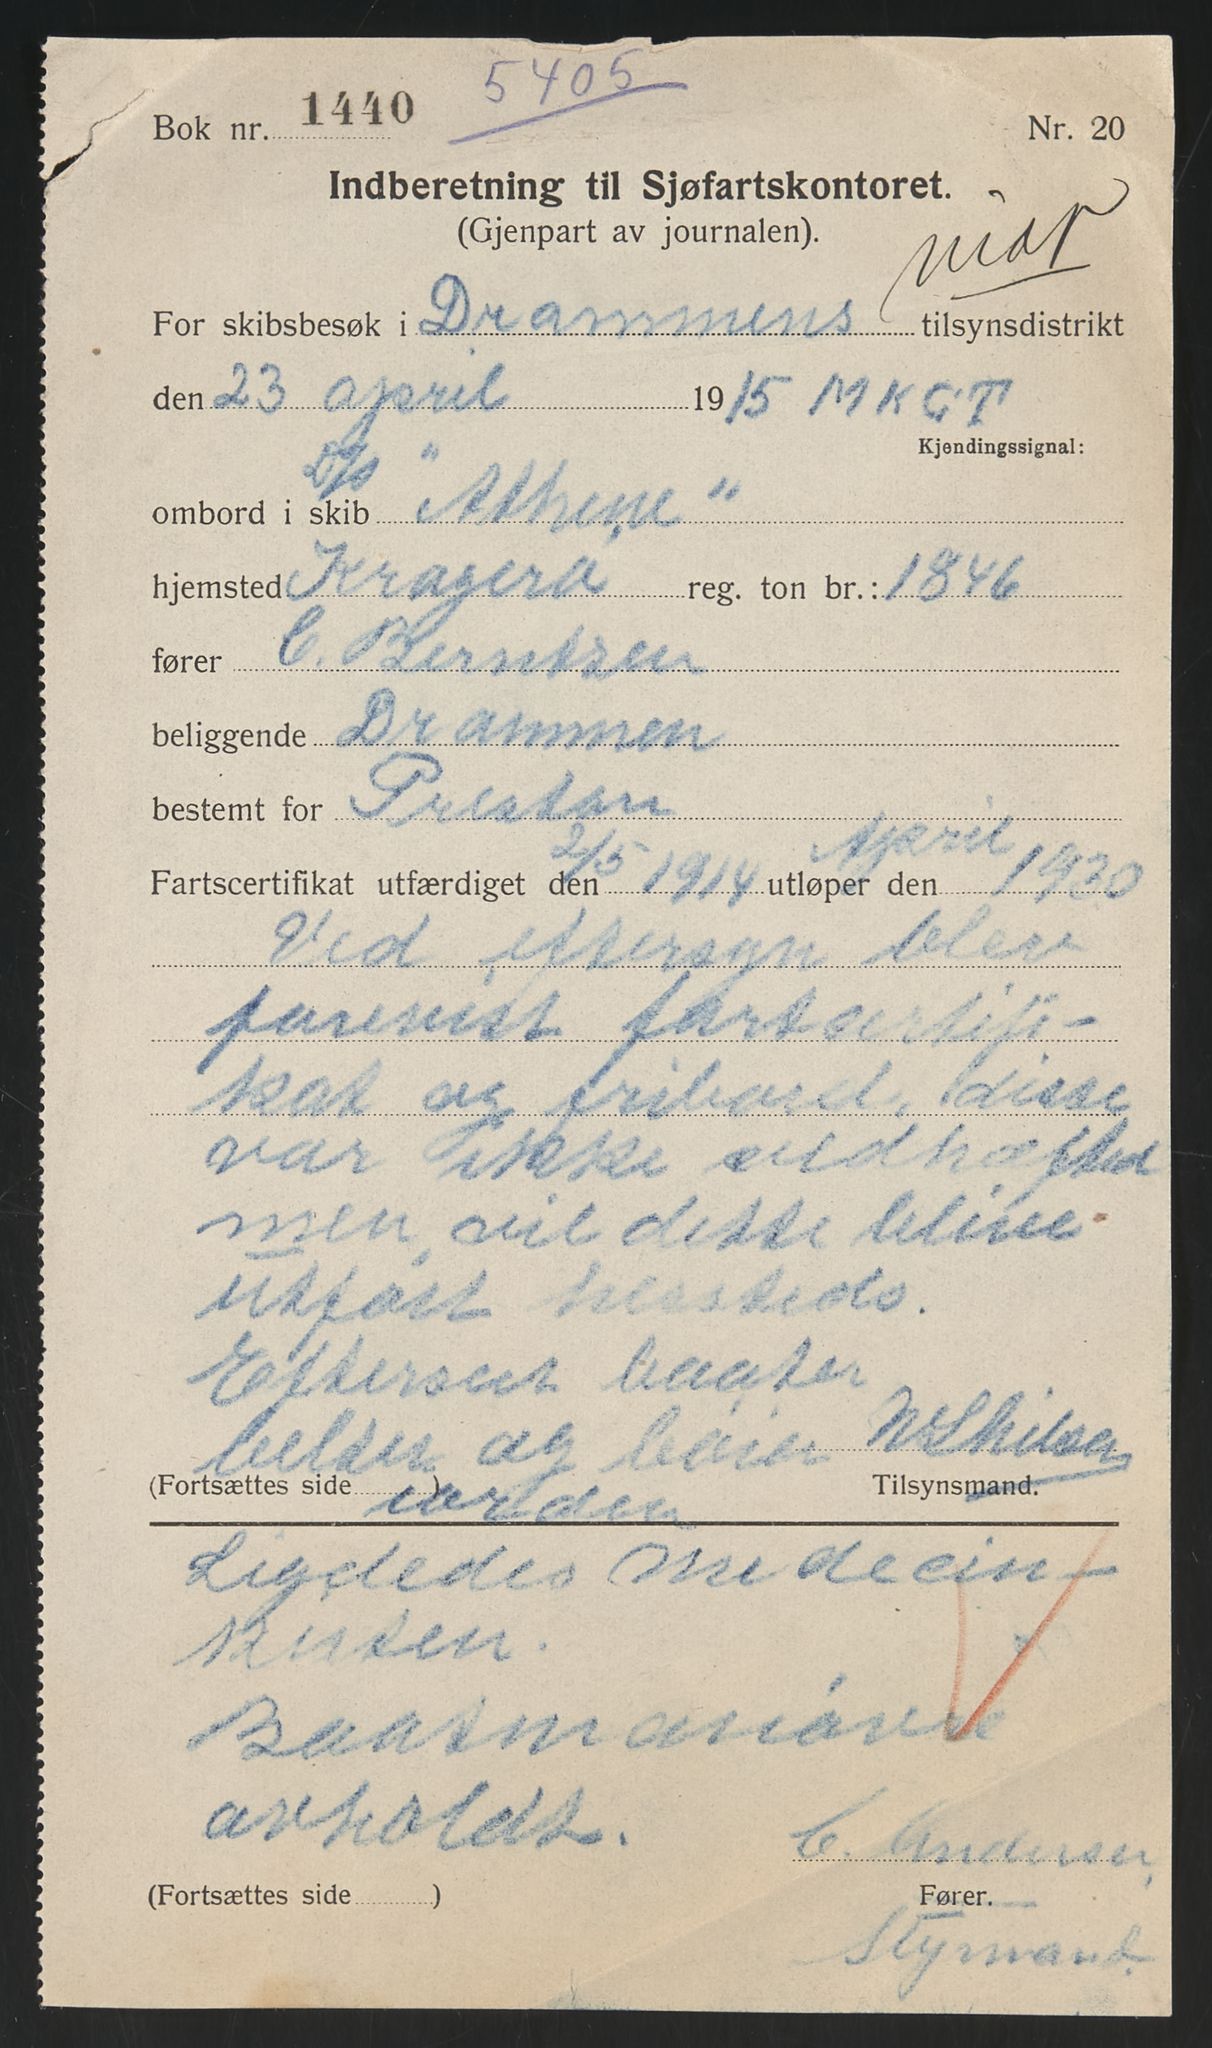 5405
Bok nr. 1440 Nr. 20
Indberetning til Sjøfartskontoret.
(Gjenpart av journalen).
For skibsbesøk i Drammens tilsynsdistrikt
den 23 april 1915 MKGT
Kjendingssignal:
D/S
ombord i skib "Athene"
hjemsted Kragerø reg. ton br.: 1846
fører C. Berntzen
beliggende Drammen
bestemt for Preston
Fartscertifikat utfærdiget den 2/5 1914 utløper den April 1920
Ved eftersyn blev
forevist fartsertifi-
kat og fribord, disse
var ikke vedhæfted
men vil dette blive
utført hersteds.
Efterset baater
belter og bøier
(Fortsættes side ) Tilsynsmand.
i orden
Ligeledes medecin-
kisten.
Baatmanøvre
avholdt.
C. Andersen,
(Fortsættes side ) Fører.
Styrmand.